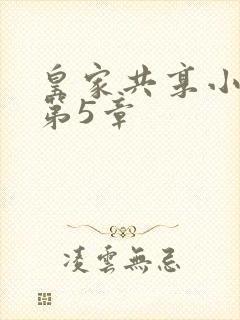 皇家共享小
第5章
凌雲無忌